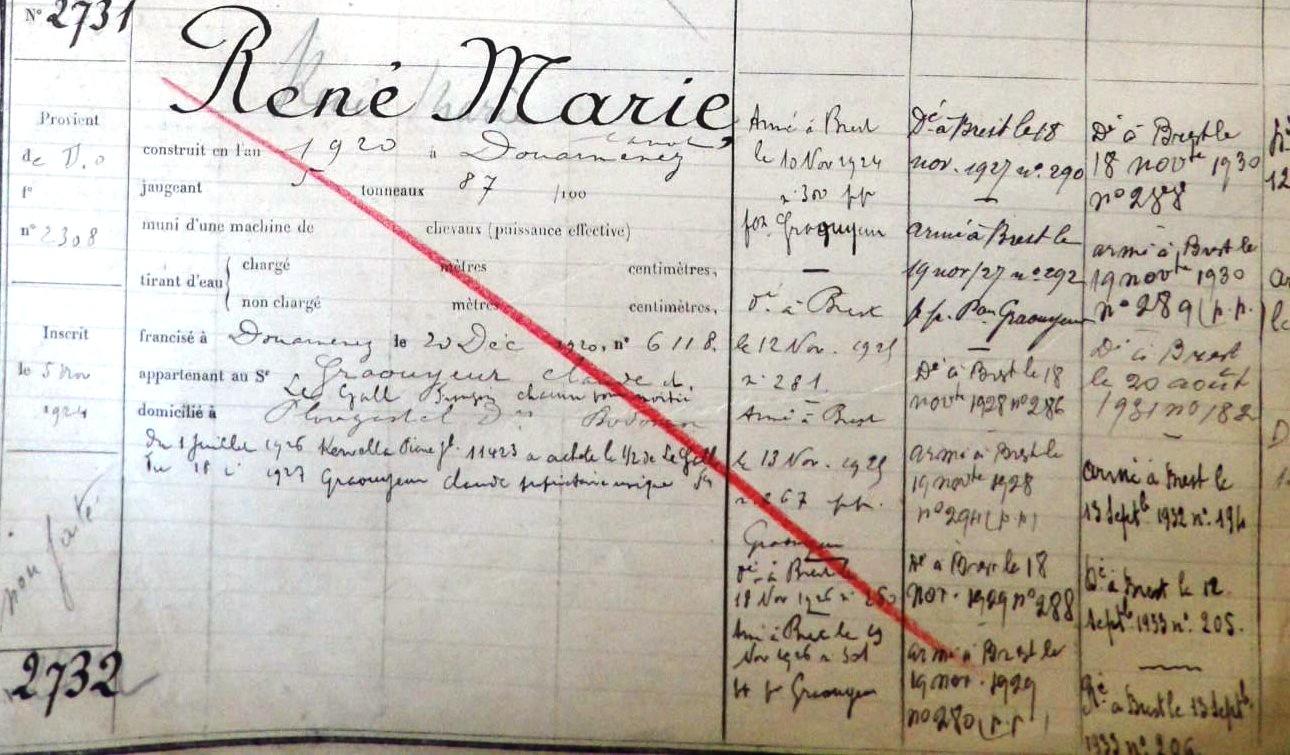 N° 2731
René Marie
Provient
de D.o
f°
n° 2308
Inscrit
le 5 Nov
1924
non jaugé
2732
canot
construit en l'an 1920 à Douarnenez
jaugeant 5 tonneaux 87 /100
muni d'une machine de chevaux (puissance effective)
tirant d'eau
chargé mètres centimètres,
non chargé mètres centimètres,
francisé à Douarnenez le 20 Déc 1920, n° 6118.
appartenant au Sr Graouyeur Claude
Le Gall chacun pour moitié
domicilié à Plougastel
Du 1 Juillet 1926 Kervella 11423 a acheté le 1/2 de Le Gall
Du 18 1927 Graouyeur Claude propriétaire unique
Armé à Brest
le 10 Nov 1924
n° 300 pp
Graouyeur
Dé à Brest
le 12 Nov. 1925
n° 281.
Armé à Brest
le 13 Nov. 1925
n° 267 pp.
Graouyeur
Dé à Brest le
18 Nov 1926 n° 250
Armé à Brest le 19
Nov 1926 n° 301
Graouyeur
Dé à Brest le 18
nov. 1927 n°. 290
armé à Brest le
19 nov/27 n° 292
p.p. Pon Graouyeur
Dé à Brest le 18
novbre 1928 n° 286
armé à Brest le
19 novbre 1928
n° 294 (p.p)
Dé à Brest le 18
nov. 1929 n° 288
armé à Brest le
19 nov. 1929
n° 280 (p.p)
Dé à Brest le
18 novbre 1930
n° 288
armé à Brest le
19 novbre 1930
n° 289 (p.p.)
Dé à Brest
le 20 août
1931 n° 182
armé à Brest le
13 Septb 1932 n°. 194
Dé à Brest le 12
Septb 1933 n°. 205.
Ré à Brest le 13 Septb
1933 n° 206